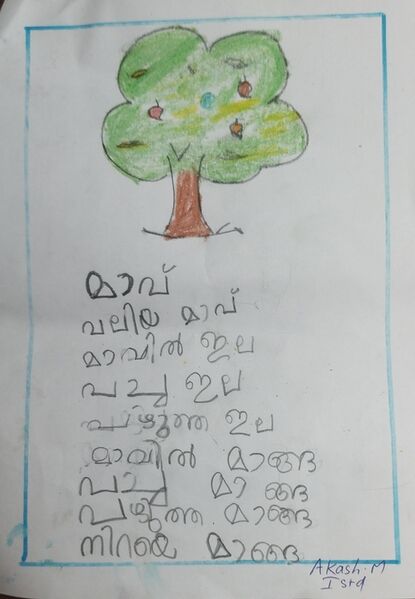 മാവ്
വലിയ മാവ്
മാവിൽ ഇല
പച്ച ഇല
പഴുത്ത ഇല
മാവിൽ മാങ്ങ
പച്ച മാങ്ങ
പഴുത്ത മാങ്ങ
നിറയെ മാങ്ങ
Akash.M
I srd